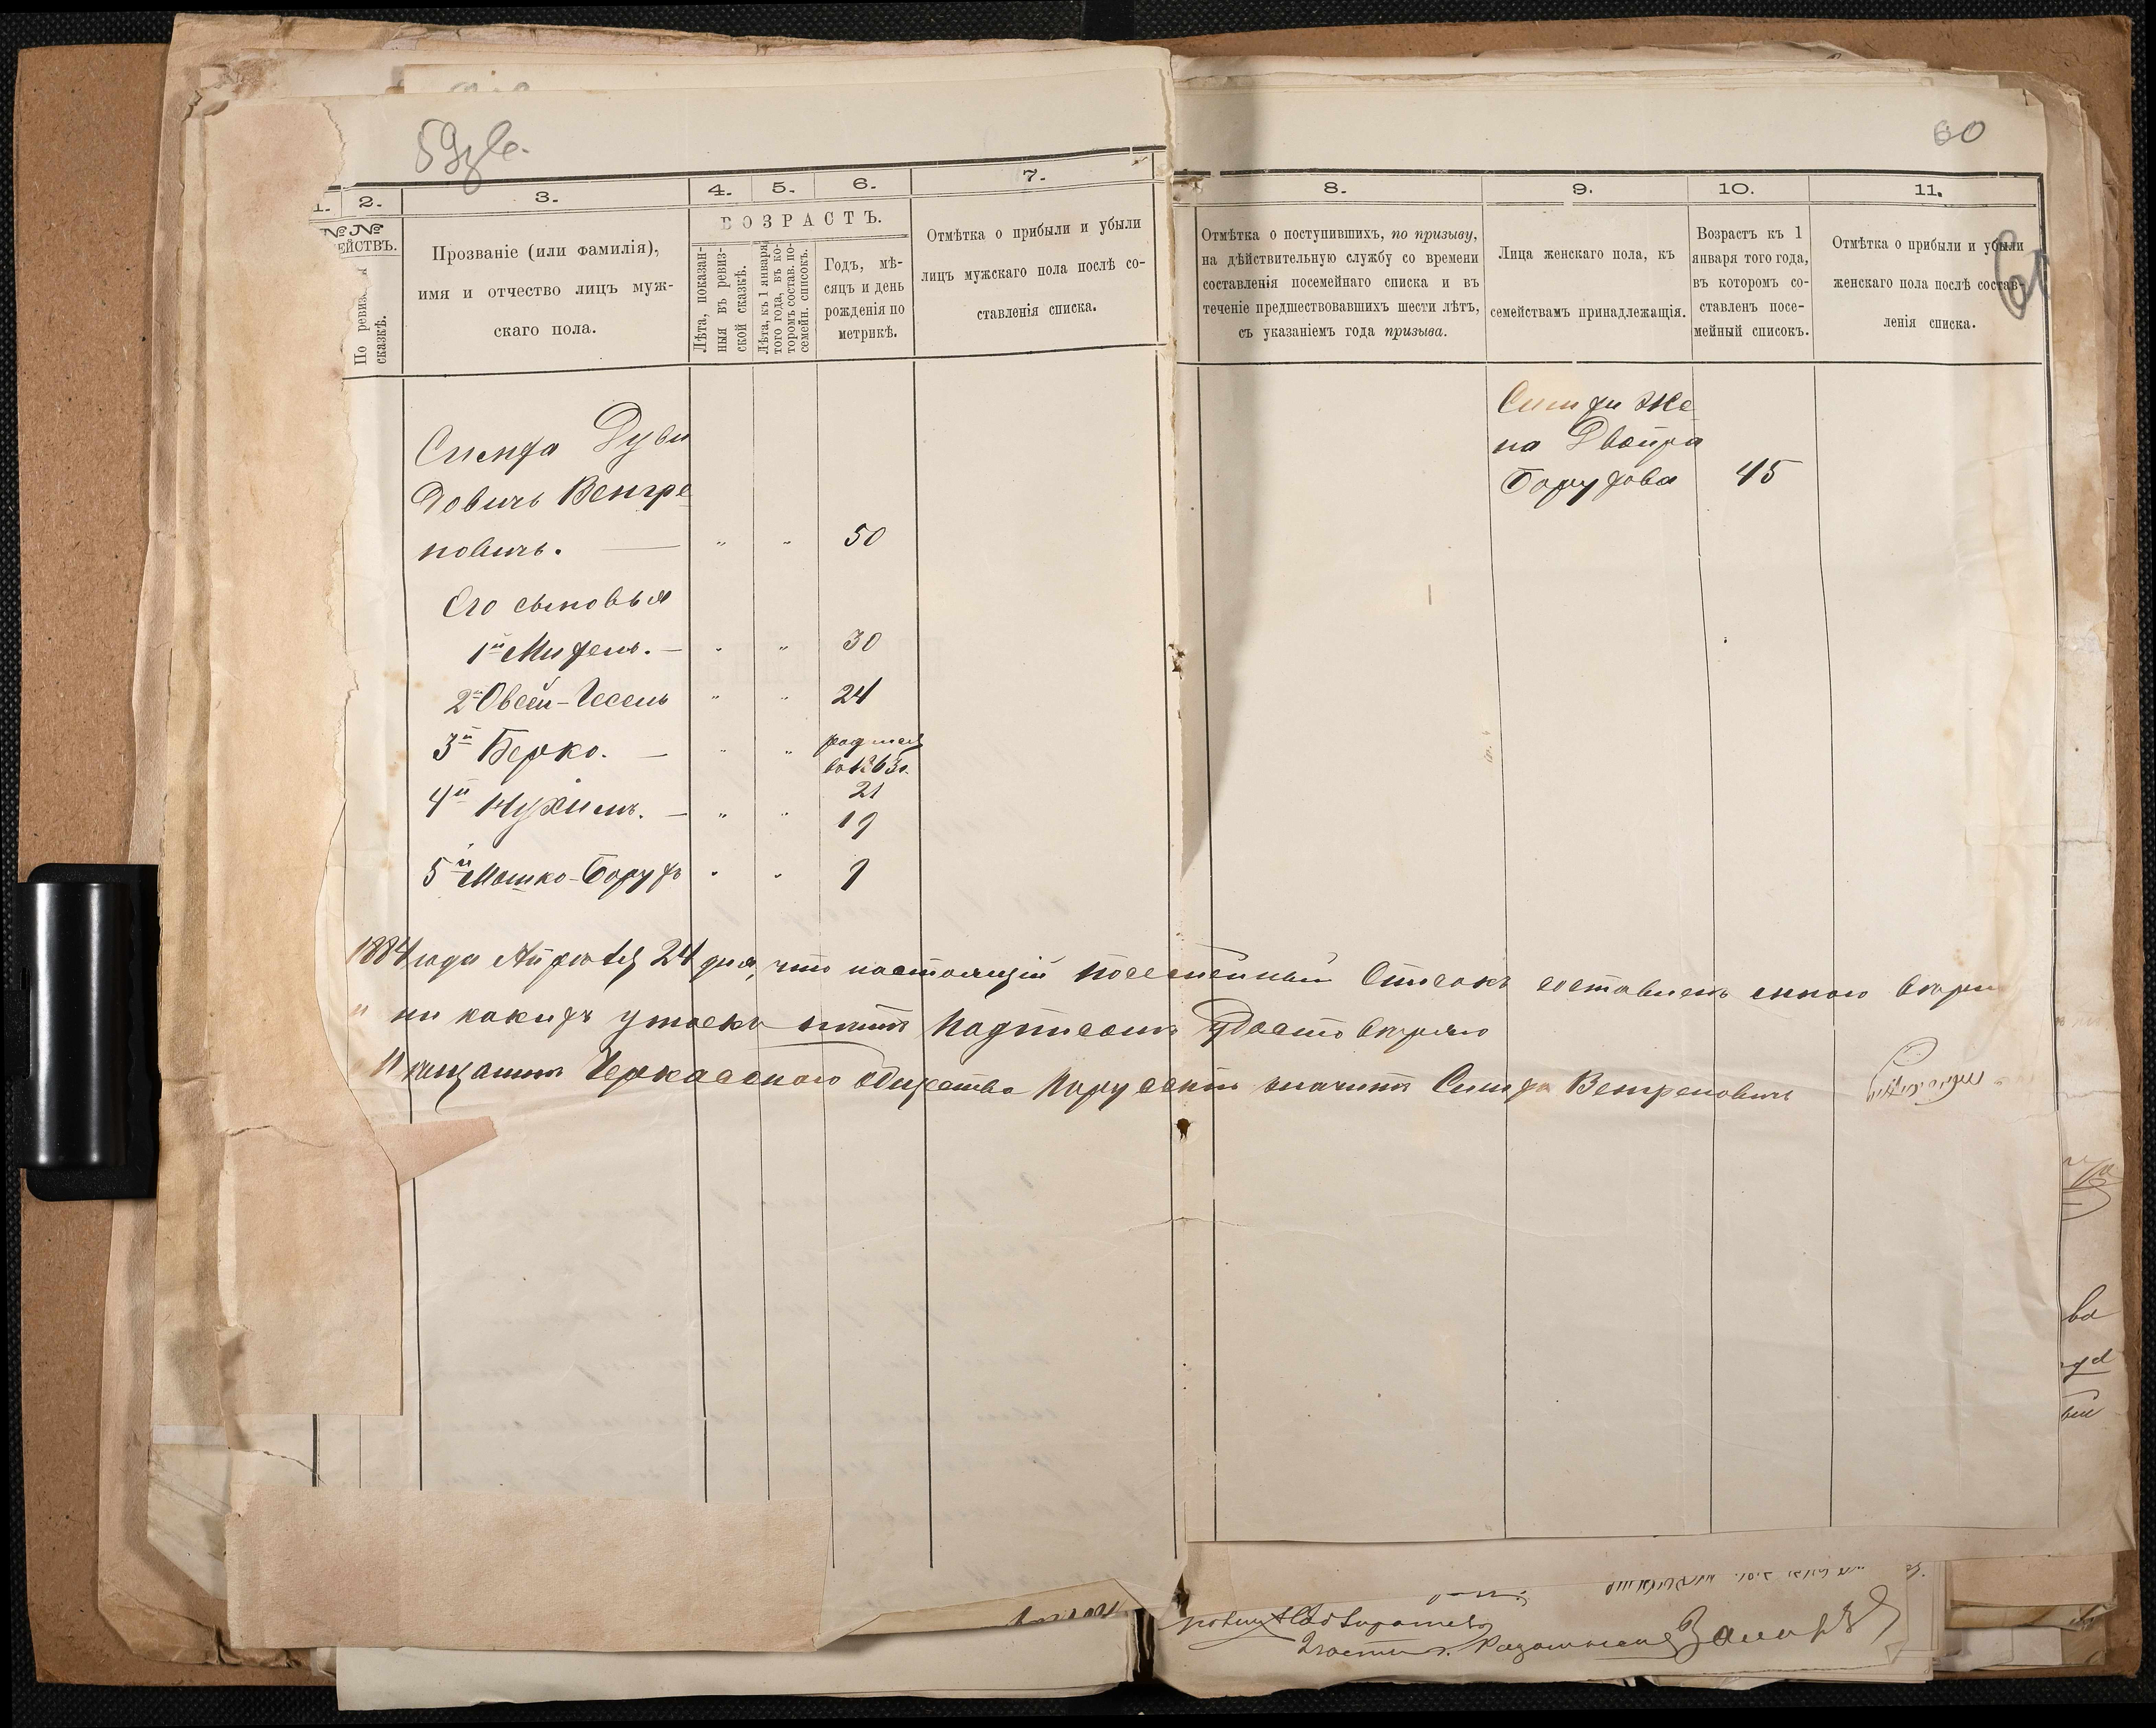 60
1. 2. 3. 4. 5. 6. 7.
№№
ЕЙСТВЪ.
По ревиз.
сказкѣ.
Прозваніе (или фамилія),
имя и отчество лицъ муж-
скаго пола.
ВОЗРАСТЪ.
Лѣта, показан-
ныя въ ревиз-
ской сказкѣ.
Лѣта, къ 1 января
того года, въ ко-
торомъ состав. по-
семейн. списокъ.
Годъ, мѣ-
сяцъ и день
рожденія по
метрикѣ.
Отмѣтка о прибыли и убыли
лицъ мужскаго пола послѣ со-
ставленія списка.
8. 9. 10. 11.
Отмѣтка о поступившихъ, по призыву,
на дѣйствительную службу со времени
составленія посемейнаго списка и въ
теченіе предшествовавшихъ шести лѣтъ,
съ указаніемъ года призыва.
Лица женскаго пола, къ
семействамъ принадлежащія.
Возрастъ къ 1
января того года,
въ которомъ со-
ставленъ посе-
мейный списокъ.
Отмѣтка о прибыли и убыли
женскаго пола послѣ состав-
ленія списка.
61
Симха Дуви
довичъ Венгре
новичъ. — " " 50
Его сыновья
1й Михель. — " " 30
2й Овсей-Іесель " " 24
3й Берко. — " " родился
въ 1863г.
21
4й Нухимъ. — " " 19
5й Мошко-Борухъ " " 9
Симхи Же
на Двойра
Борухова 45
1884 года Апреля 24 дня, что настоящій посемейный Списокъ составленъ
ни какихъ утаекъ нѣтъ подписомъ удостовѣряю
Мещанинъ Черкасскаго общества Порусски значитъ Симха Венгреновичъ